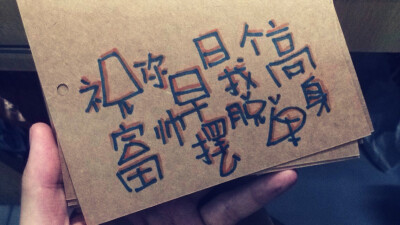 祝你早日找个高
富帅摆脱单身